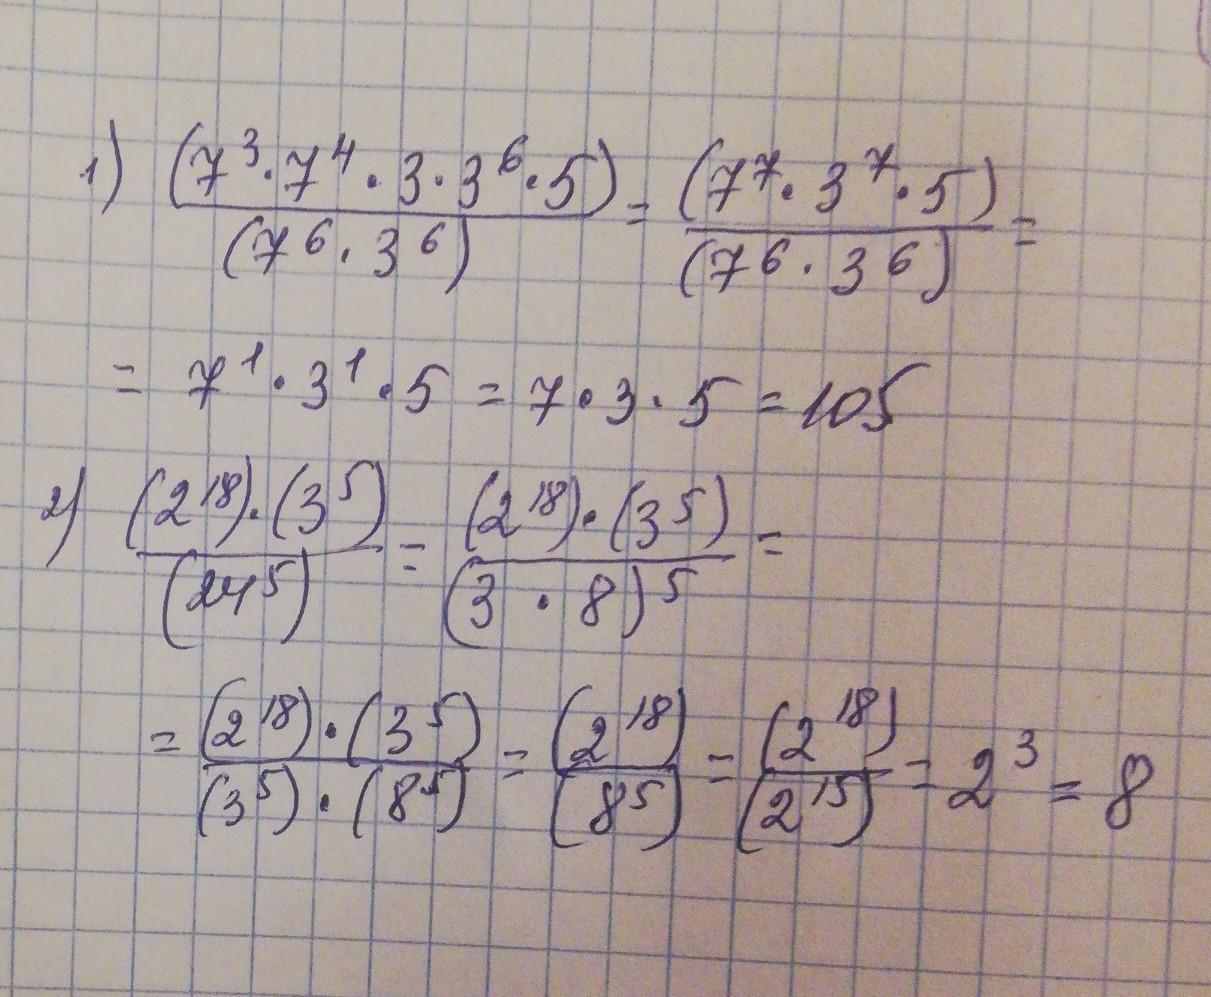 1) (7³·7⁴·3·3⁶·5)/(7⁶·3⁶) = (7⁷·3⁷·5)/(7⁶·3⁶) =
= 7¹·3¹·5 = 7·3·5 = 105
2) (2¹⁸)·(3⁵)/(24⁵) = (2¹⁸)·(3⁵)/(3·8)⁵ =
= (2¹⁸)·(3⁵)/(3⁵)·(8⁵) = (2¹⁸)/(8⁵) = (2¹⁸)/(2¹⁵) = 2³ = 8